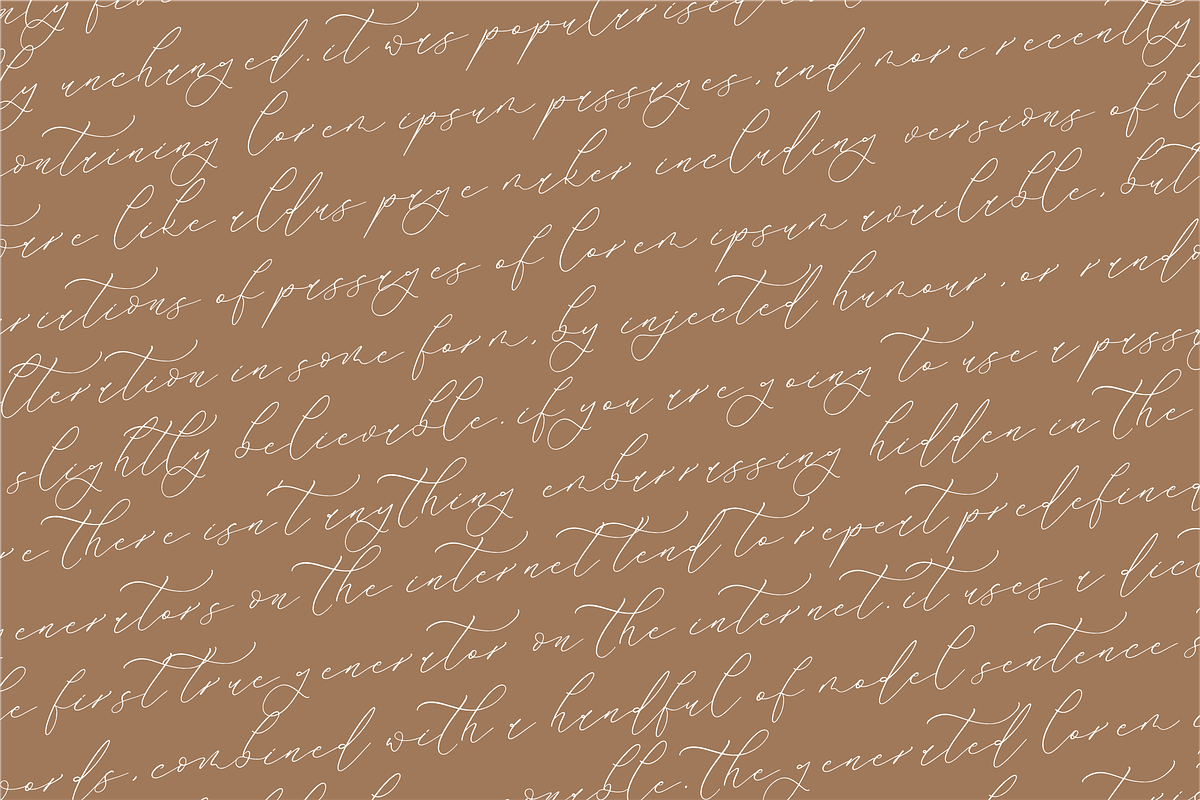 nly five
ly unchanged. it was popularised
ontaining lorem ipsum passages, and more recently
ware like aldus page maker including versions of l
riations of passages of lorem ipsum available, but
lteration in some form, by injected humour, or rando
slightly believable. if you are going to use a passa
re there isn't anything embarrassing hidden in the
enerators on the internet tend to repeat predefined
e first true generator on the internet. it uses a dict
ords, combined with a handful of model sentence s
onable. the generated lorem